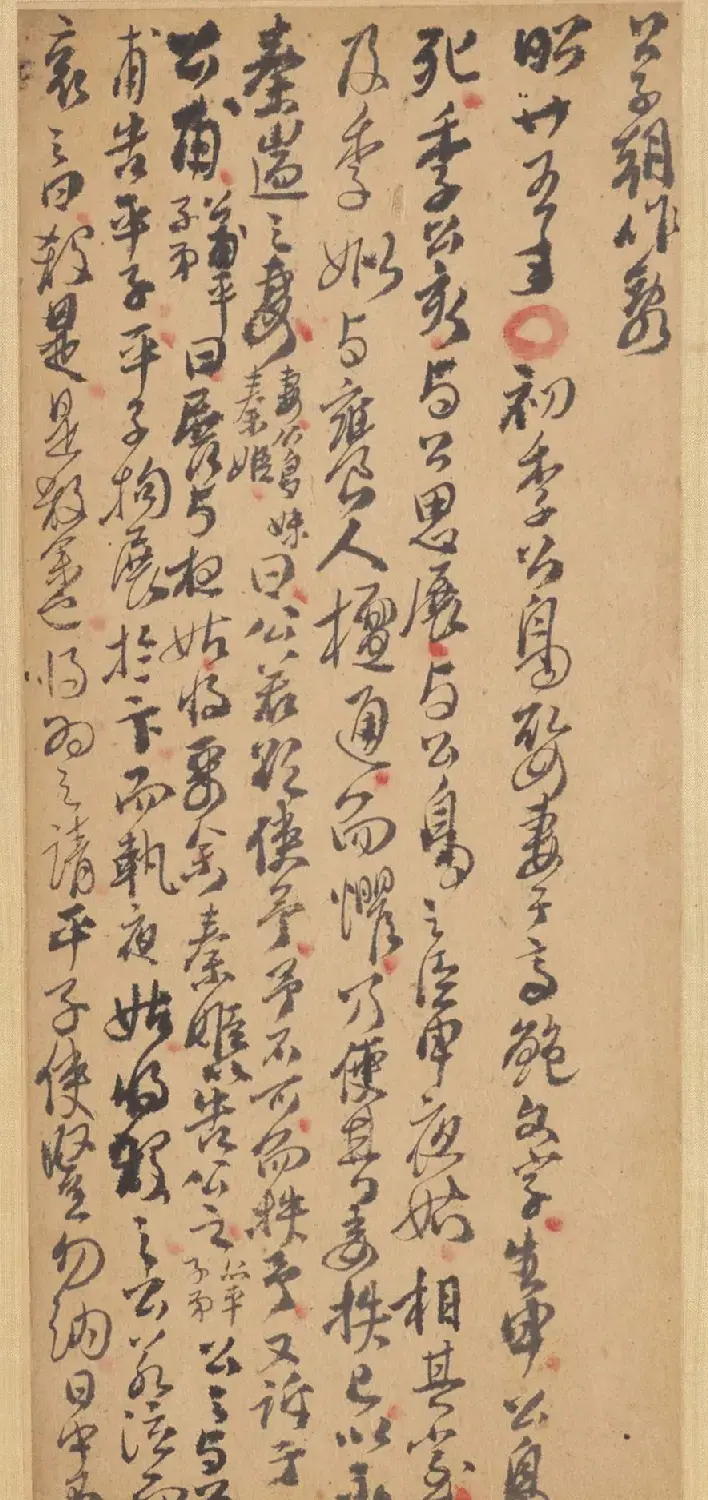 公子朝作亂
昭廿五年初季公鳥娶妻于齊鮑文子生甲公鳥
死季公亥与公思展与公鳥之臣申夜姑相其室
及季姒与饔人檀通而懼乃使其妾抶己以示
秦遄之妻妻公鳥妹秦姬曰公若欲使余余不可而抶余又訴于
公甫公甫平子弟曰展与夜姑将要余秦姬以告公之公之平子弟公之与公
甫告平子平子拘展於卞而執夜姑将殺之公若泣而
哀之曰殺是是殺余也将为之請平子使豎勿納日中不